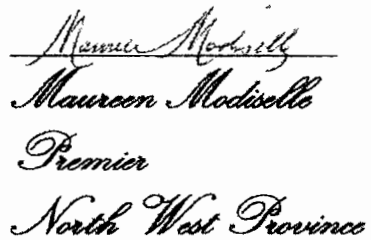 Maureen Modiselle
Maureen Modiselle
Premier
North West Province